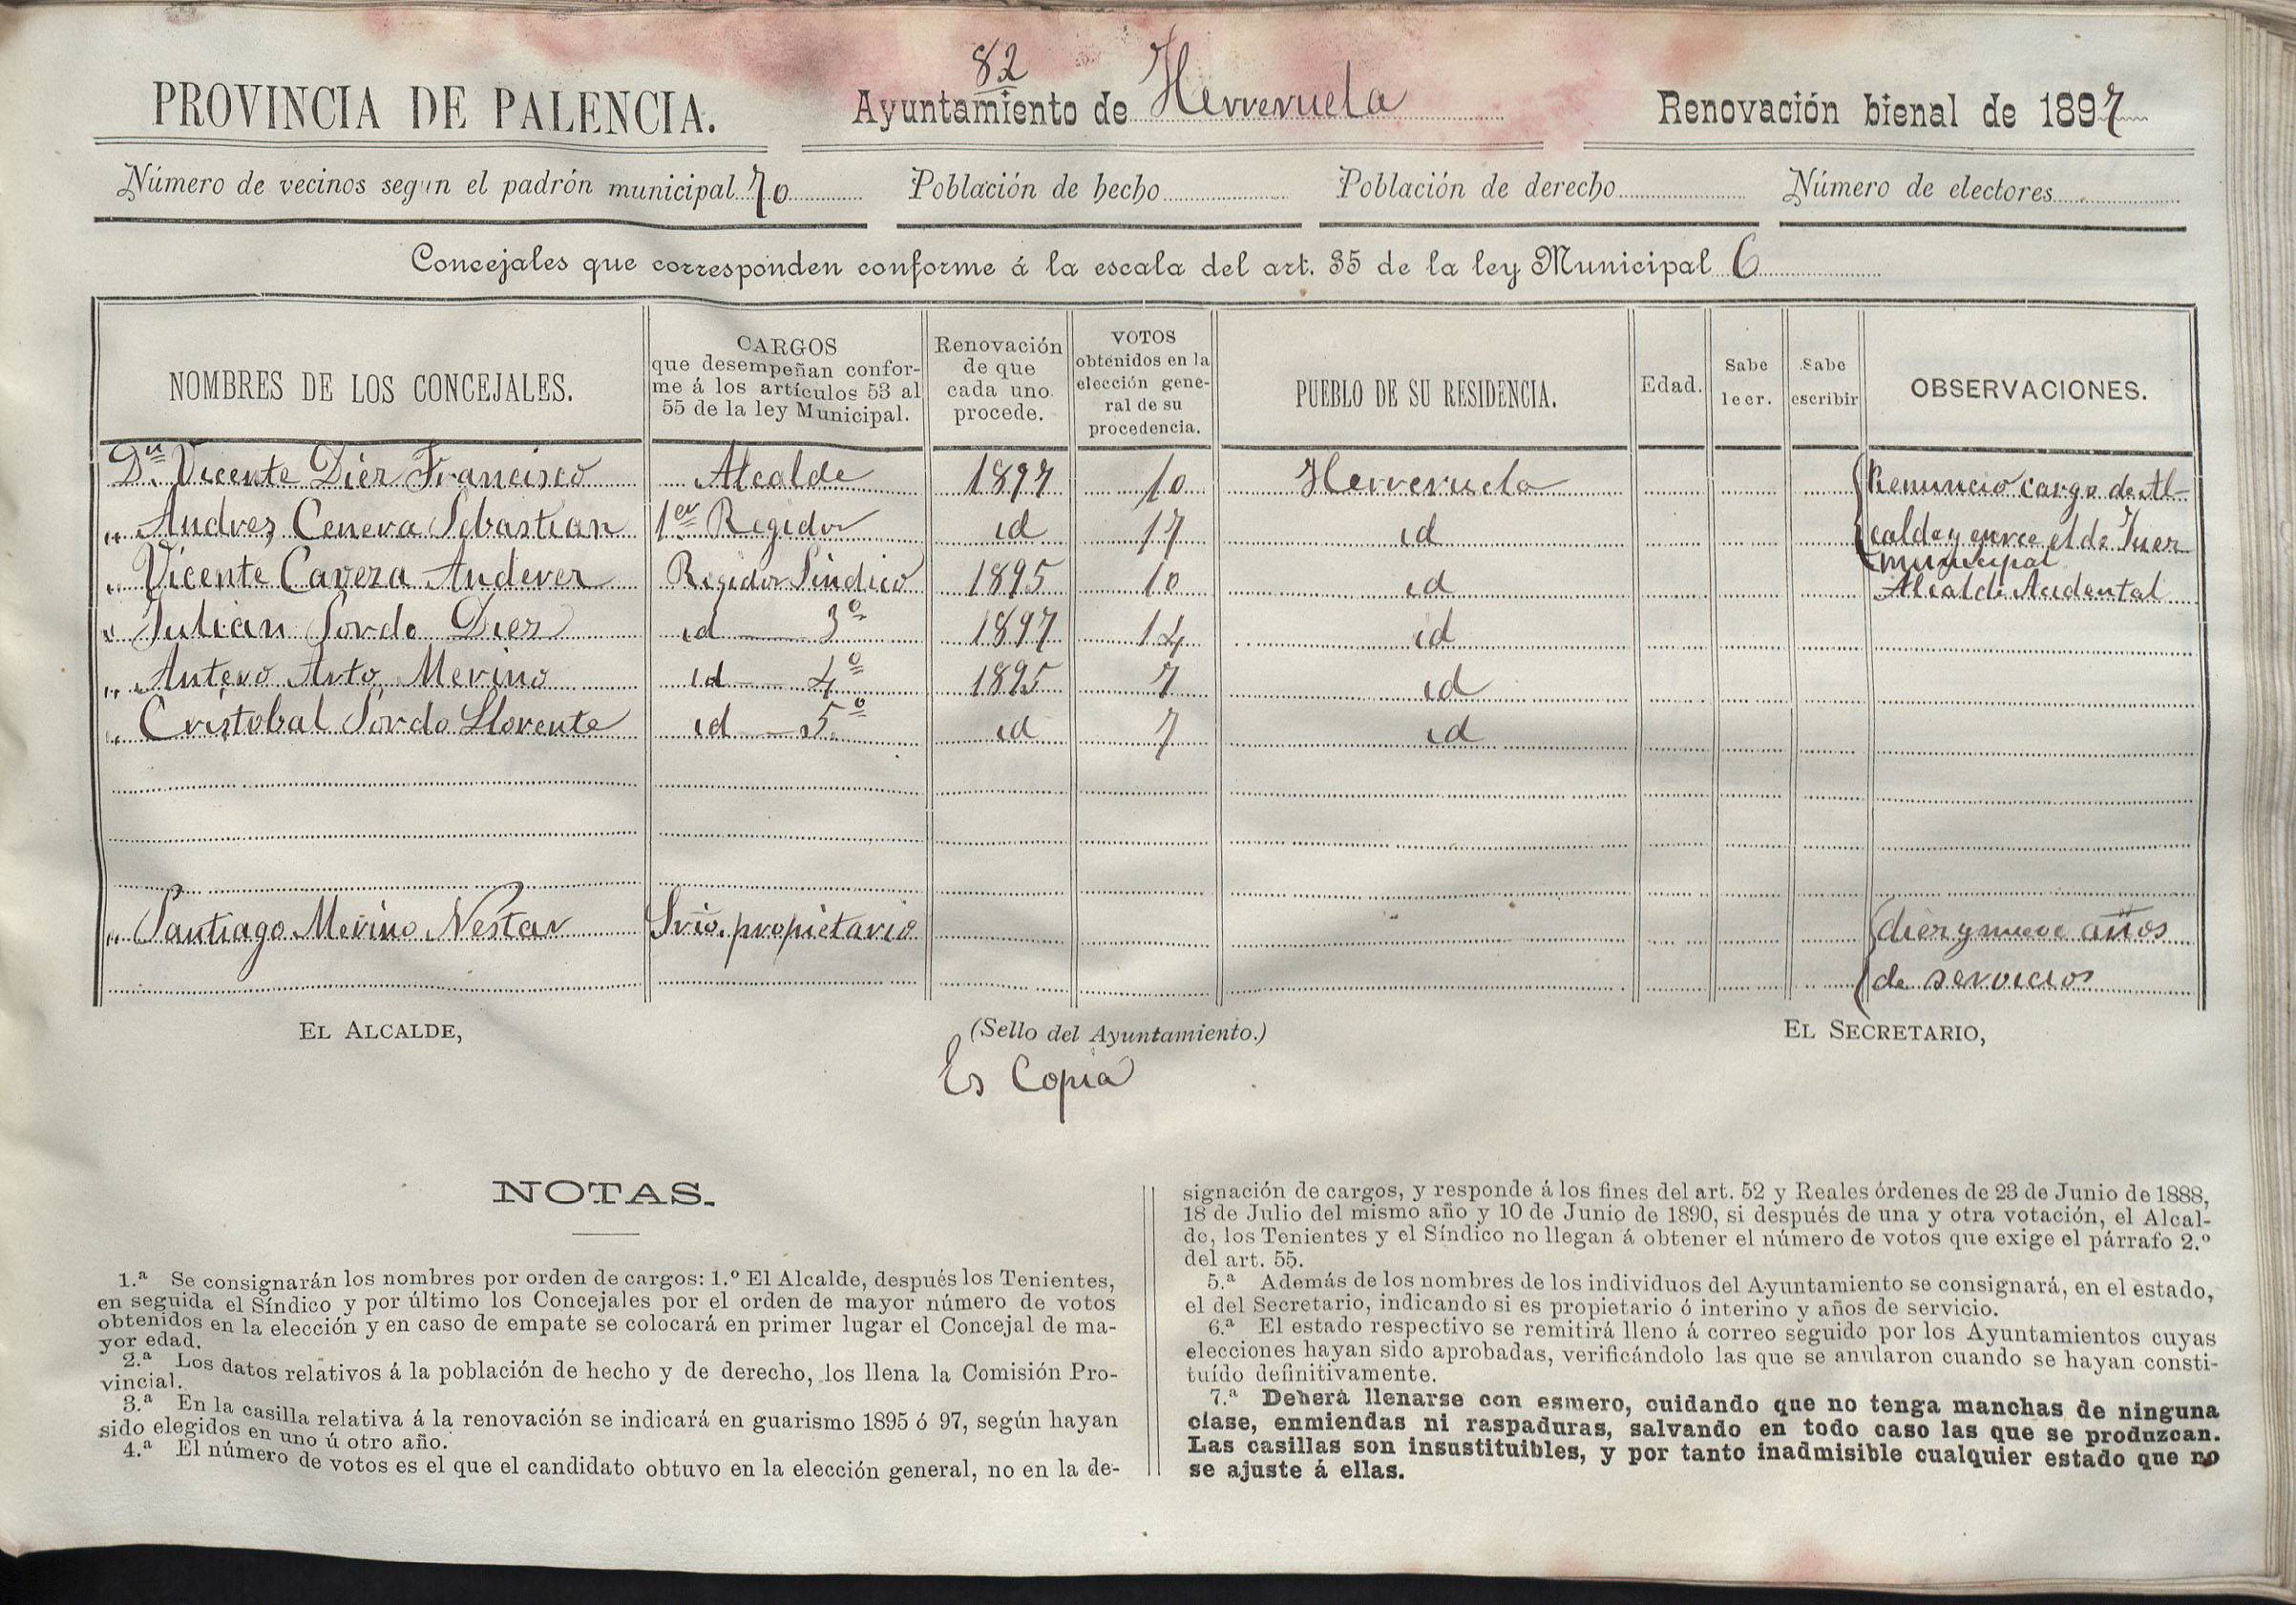 82
PROVINCIA DE PALENCIA. Ayuntamiento de Herreruela Renovación bienal de 1897
Número de vecinos según el padrón municipal 70 Población de hecho Población de derecho Número de electores
Concejales que corresponden conforme á la escala del art. 35 de la ley Municipal 6
NOMBRES DE LOS CONCEJALES. CARGOS que desempeñan confor- me á los artículos 53 al 55 de la ley Municipal. Renovación de que cada uno procede. VOTOS obtenidos en la elección gene- ral de su procedencia. PUEBLO DE SU RESIDENCIA. Edad. Sabe leer. Sabe escribir OBSERVACIONES.
Dn. Vicente Diez Francisco Alcalde 1897 10 Herreruela Renuncio cargo de Al-
„ Andres Cenera Sebastian 1er Regidor id 17 id calde y ejerce el de Juez
municipal
„ Vicente Caveza Andever Regidor Sindico 1895 10 id Alcalde Acidental
„ Julian Sordo Diez id 3º 1897 14 id
„ Antero Arto Merino id 4º 1895 7 id
„ Cristobal Sordo Llorente id 5º id 7 id
„ Santiago Merino Nestar Srio. propietario diez y nueve años
de servicios
EL ALCALDE, (Sello del Ayuntamiento.) EL SECRETARIO,
Es Copia
NOTAS.
1.ª Se consignarán los nombres por orden de cargos: 1.º El Alcalde, después los Tenientes,
en seguida el Síndico y por último los Concejales por el orden de mayor número de votos
obtenidos en la elección y en caso de empate se colocará en primer lugar el Concejal de ma-
yor edad.
2.ª Los datos relativos á la población de hecho y de derecho, los llena la Comisión Pro-
vincial.
3.ª En la casilla relativa á la renovación se indicará en guarismo 1895 ó 97, según hayan
sido elegidos en uno ú otro año.
4.ª El número de votos es el que el candidato obtuvo en la elección general, no en la de-
signación de cargos, y responde á los fines del art. 52 y Reales órdenes de 23 de Junio de 1888,
18 de Julio del mismo año y 10 de Junio de 1890, si después de una y otra votación, el Alcal-
de, los Tenientes y el Síndico no llegan á obtener el número de votos que exige el párrafo 2.º
del art. 55.
5.ª Además de los nombres de los individuos del Ayuntamiento se consignará, en el estado,
el del Secretario, indicando si es propietario ó interino y años de servicio.
6.ª El estado respectivo se remitirá lleno á correo seguido por los Ayuntamientos cuyas
elecciones hayan sido aprobadas, verificándolo las que se anularon cuando se hayan consti-
tuído definitivamente.
7.ª Deberá llenarse con esmero, cuidando que no tenga manchas de ninguna
clase, enmiendas ni raspaduras, salvando en todo caso las que se produzcan.
Las casillas son insustituibles, y por tanto inadmisible cualquier estado que no
se ajuste á ellas.